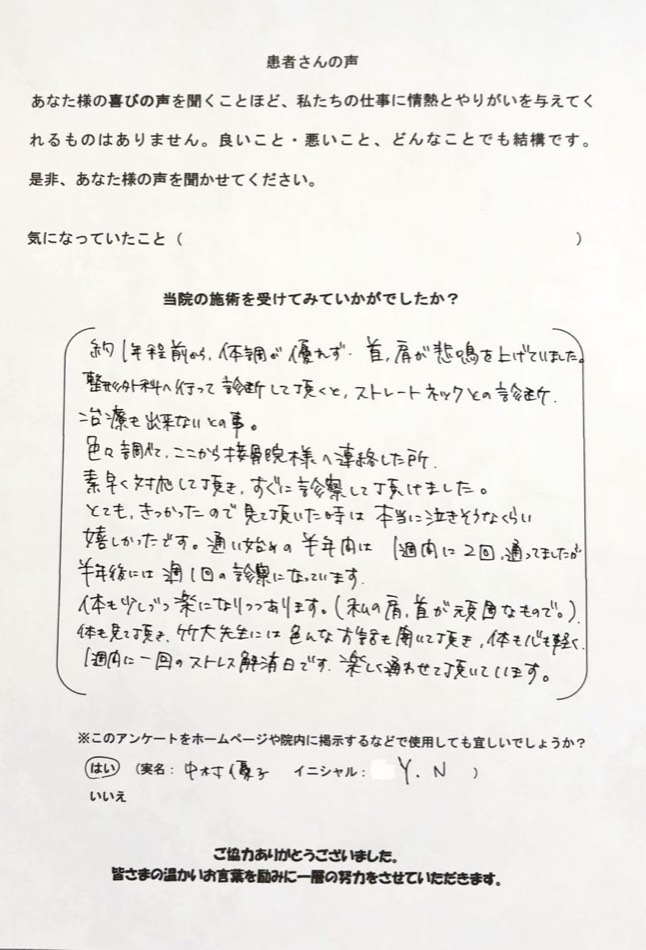 患者さんの声
あなた様の喜びの声を聞くことほど、私たちの仕事に情熱とやりがいを与えてく
れるものはありません。良いこと・悪いこと、どんなことでも結構です。
是非、あなた様の声を聞かせてください。
気になっていたこと（ ）
当院の施術を受けてみていかがでしたか？
約1年程前から、体調が優れず、首、肩が悲鳴を上げていました。
整形外科へ行って診断して頂くと、ストレートネックとの診断、
治療も出来ないとの事。
色々調べて、ここから接骨院様へ連絡した所、
素早く対応して頂き、すぐに診察して頂けました。
とても、きつかったので見て頂いた時は本当に泣きそうなくらい
嬉しかったです。通い始めの半年間は 1週間に2回、通ってましたが
半年後には週1回の診察になっています。
体も少しづつ楽になりつつあります。（私の肩、首が頑固なもので。）
体も見て頂き、竹大先生には色んなお話も聞いて頂き、体も心も軽く、
1週間に一回のストレス解消日です。楽しく通わせて頂いています。
※このアンケートをホームページや院内に掲示するなどで使用しても宜しいでしょうか？
はい （実名：中村優子 イニシャル： Y.N ）
いいえ
ご協力ありがとうございました。
皆さまの温かいお言葉を励みに一層の努力をさせていただきます。